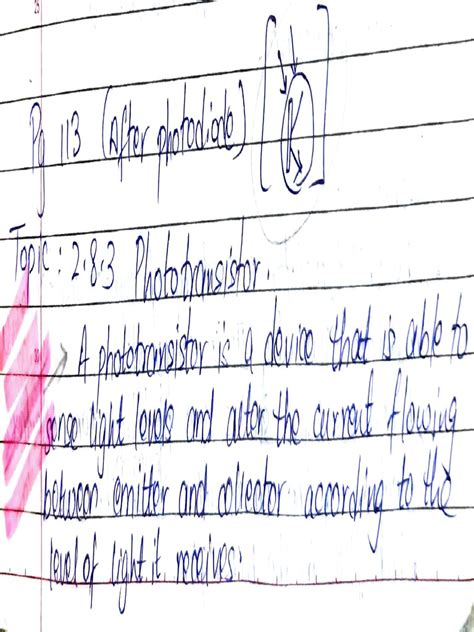 Pg 113 (After photodiode)
Topic: 2.8.3 Phototransistor.
A phototransistor is a device that is able to
sense light levels and alter the current flowing
between emitter and collector according to the
level of light it receives.